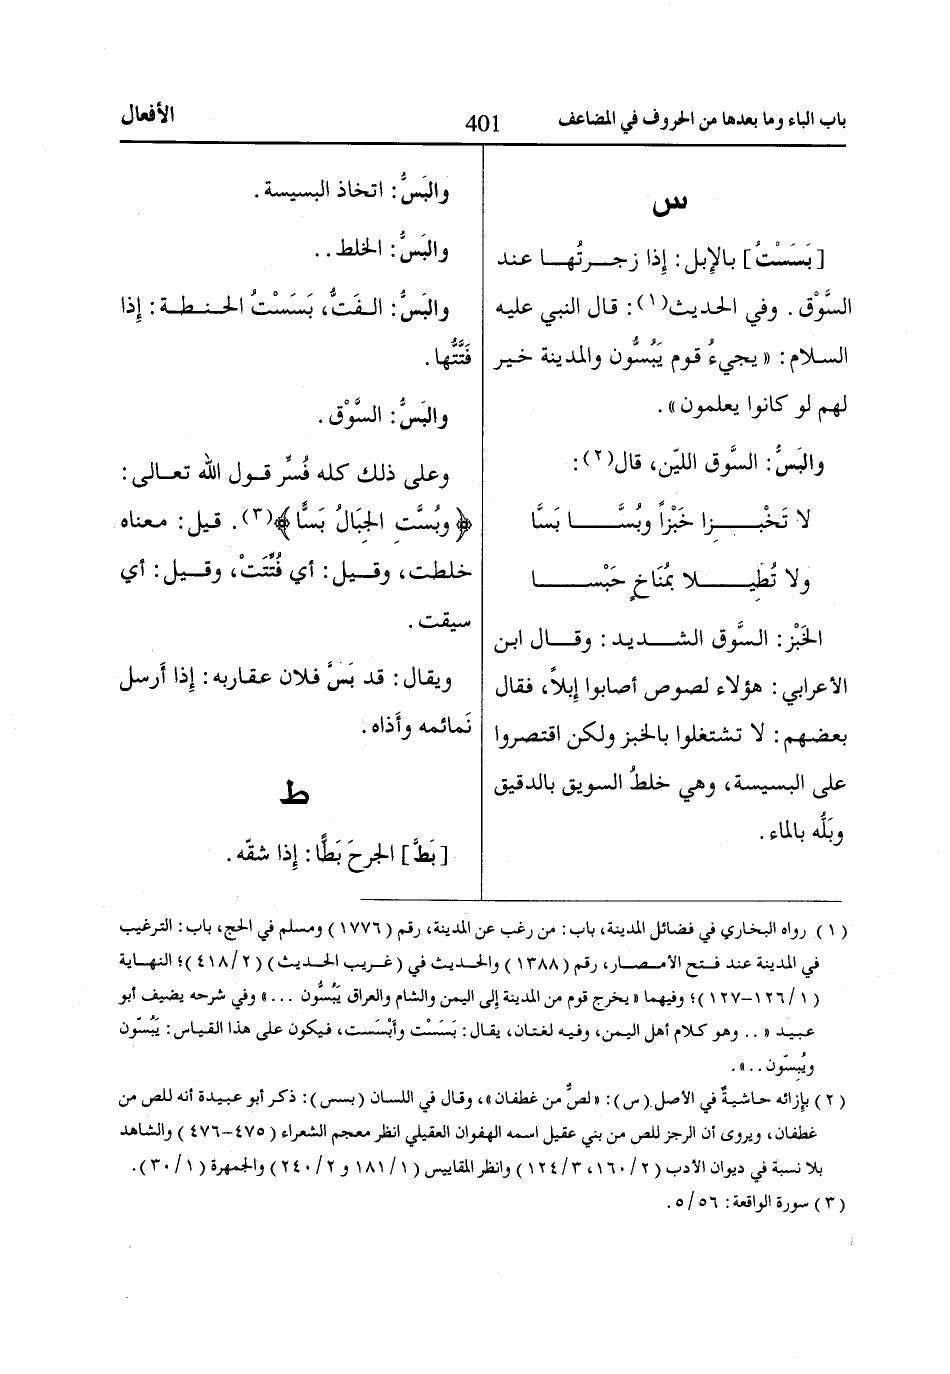 باب الباء وما بعدها من الحروف في المضاعف
401
الأفعال
س
[بَسَسْتُ] بالإبل: إذا زجرتُها عند
السَّوْق. وفي الحديث(١): قال النبي عليه
السلام: «يجيءُ قوم يَبُسُّون والمدينة خير
لهم لو كانوا يعلمون».
والبَسُّ: السَّوق الليّن، قال(٢):
لا تَخْبِزا خَبْزاً وبُسَّا بَسَّا
ولا تُطِيلا بمُنَاخٍ حَبْسا
الخَبْز: السَّوق الشديد: وقال ابن
الأعرابي: هؤلاء لصوص أصابوا إبلاً، فقال
بعضهم: لا تشتغلوا بالخبز ولكن اقتصروا
على البسيسة، وهي خلطُ السويق بالدقيق
وبَلُّه بالماء.
والبَسُّ: اتخاذ البسيسة.
والبَسُّ: الخلط..
والبَسُّ: الفَتُّ، بَسَسْتُ الحنطة: إذا
فَتَّتُّها.
والبَسُّ: السَّوْق.
وعلى ذلك كله فُسِّر قول الله تعالى:
﴿وبُسَّتِ الجبَالُ بَسًّا﴾(٣). قيل: معناه
خلطت، وقيل: أي فُتِّتَتْ، وقيل: أي
سيقت.
ويقال: قد بَسَّ فلان عقاربه: إذا أرسل
نَمائمه وأَذاه.
ط
[بَطَّ] الجرحَ بَطًّا: إذا شقّه.
(١) رواه البخاري في فضائل المدينة، باب: من رغب عن المدينة، رقم (١٧٧٦) ومسلم في الحج، باب: الترغيب
في المدينة عند فتح الأمصار، رقم (١٣٨٨) والحديث في (غريب الحديث) (٢/٤١٨)؛ النهاية
(١/١٢٦-١٢٧)؛ وفيهما «يخرج قوم من المدينة إلى اليمن والشام والعراق يَبُسُّون ...» وفي شرحه يضيف أبو
عبيد «.. وهو كلام أهل اليمن، وفيه لغتان، يقال: بَسَسْت وأَبْسَست، فيكون على هذا القياس: يَبُسّون
ويُبِسّون..».
(٢) بإزائه حاشيةٌ في الأصل (س): «لصٌّ من غطفان»، وقال في اللسان (بسس): ذكر أبو عبيدة أنه للص من
غطفان، ويروى أن الرجز للص من بني عقيل اسمه الهفوان العقيلي انظر معجم الشعراء (٤٧٥-٤٧٦) والشاهد
بلا نسبة في ديوان الأدب (٢/١٦٠، ٣/١٢٤) وانظر المقاييس (١/١٨١ و ٢/٢٤٠) والجمهرة (١/٣٠).
(٣) سورة الواقعة: ٥٦/٥.